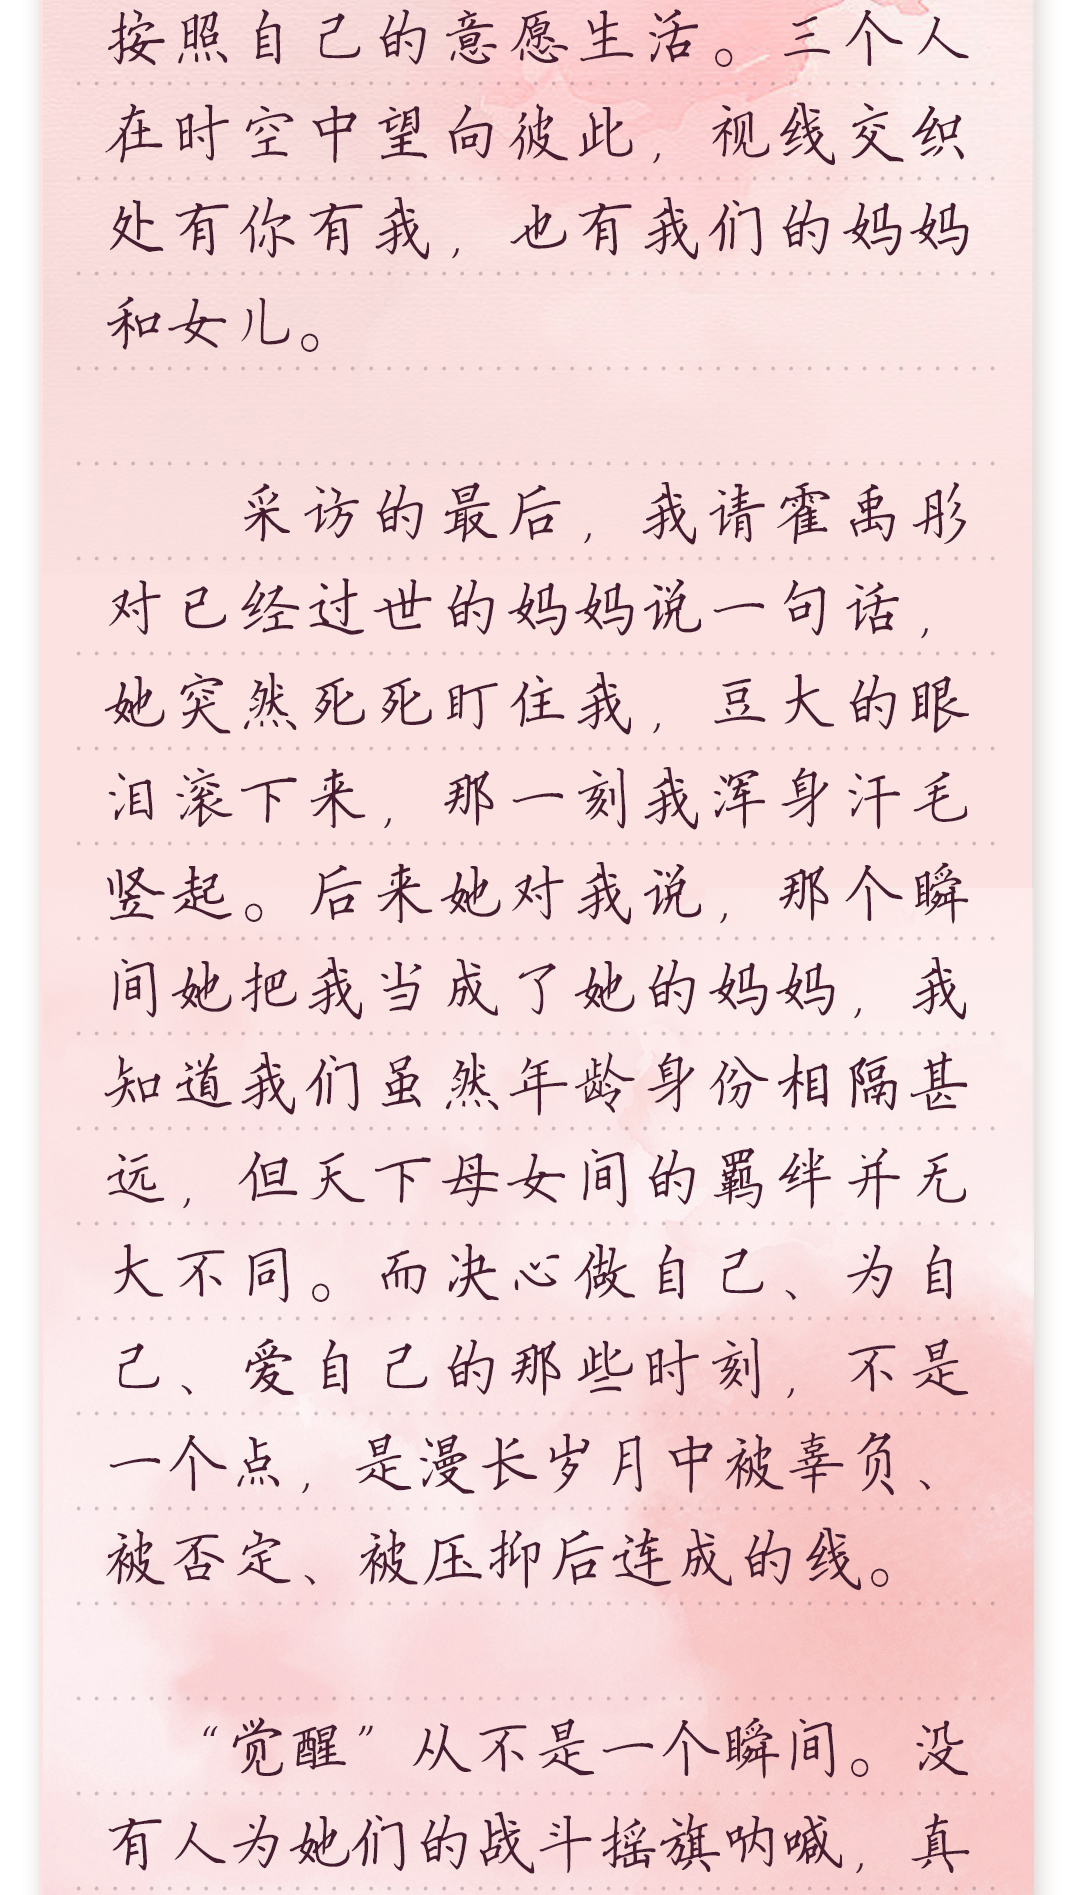 按照自己的意愿生活。三个人
在时空中望向彼此，视线交织
处有你有我，也有我们的妈妈
和女儿。
采访的最后，我请霍禹彤
对已经过世的妈妈说一句话，
她突然死死盯住我，豆大的眼
泪滚下来，那一刻我浑身汗毛
竖起。后来她对我说，那个瞬
间她把我当成了她的妈妈，我
知道我们虽然年龄身份相隔甚
远，但天下母女间的羁绊并无
大不同。而决心做自己、为自
己、爱自己的那些时刻，不是
一个点，是漫长岁月中被辜负、
被否定、被压抑后连成的线。
“觉醒”从不是一个瞬间。没
有人为她们的战斗摇旗呐喊，真